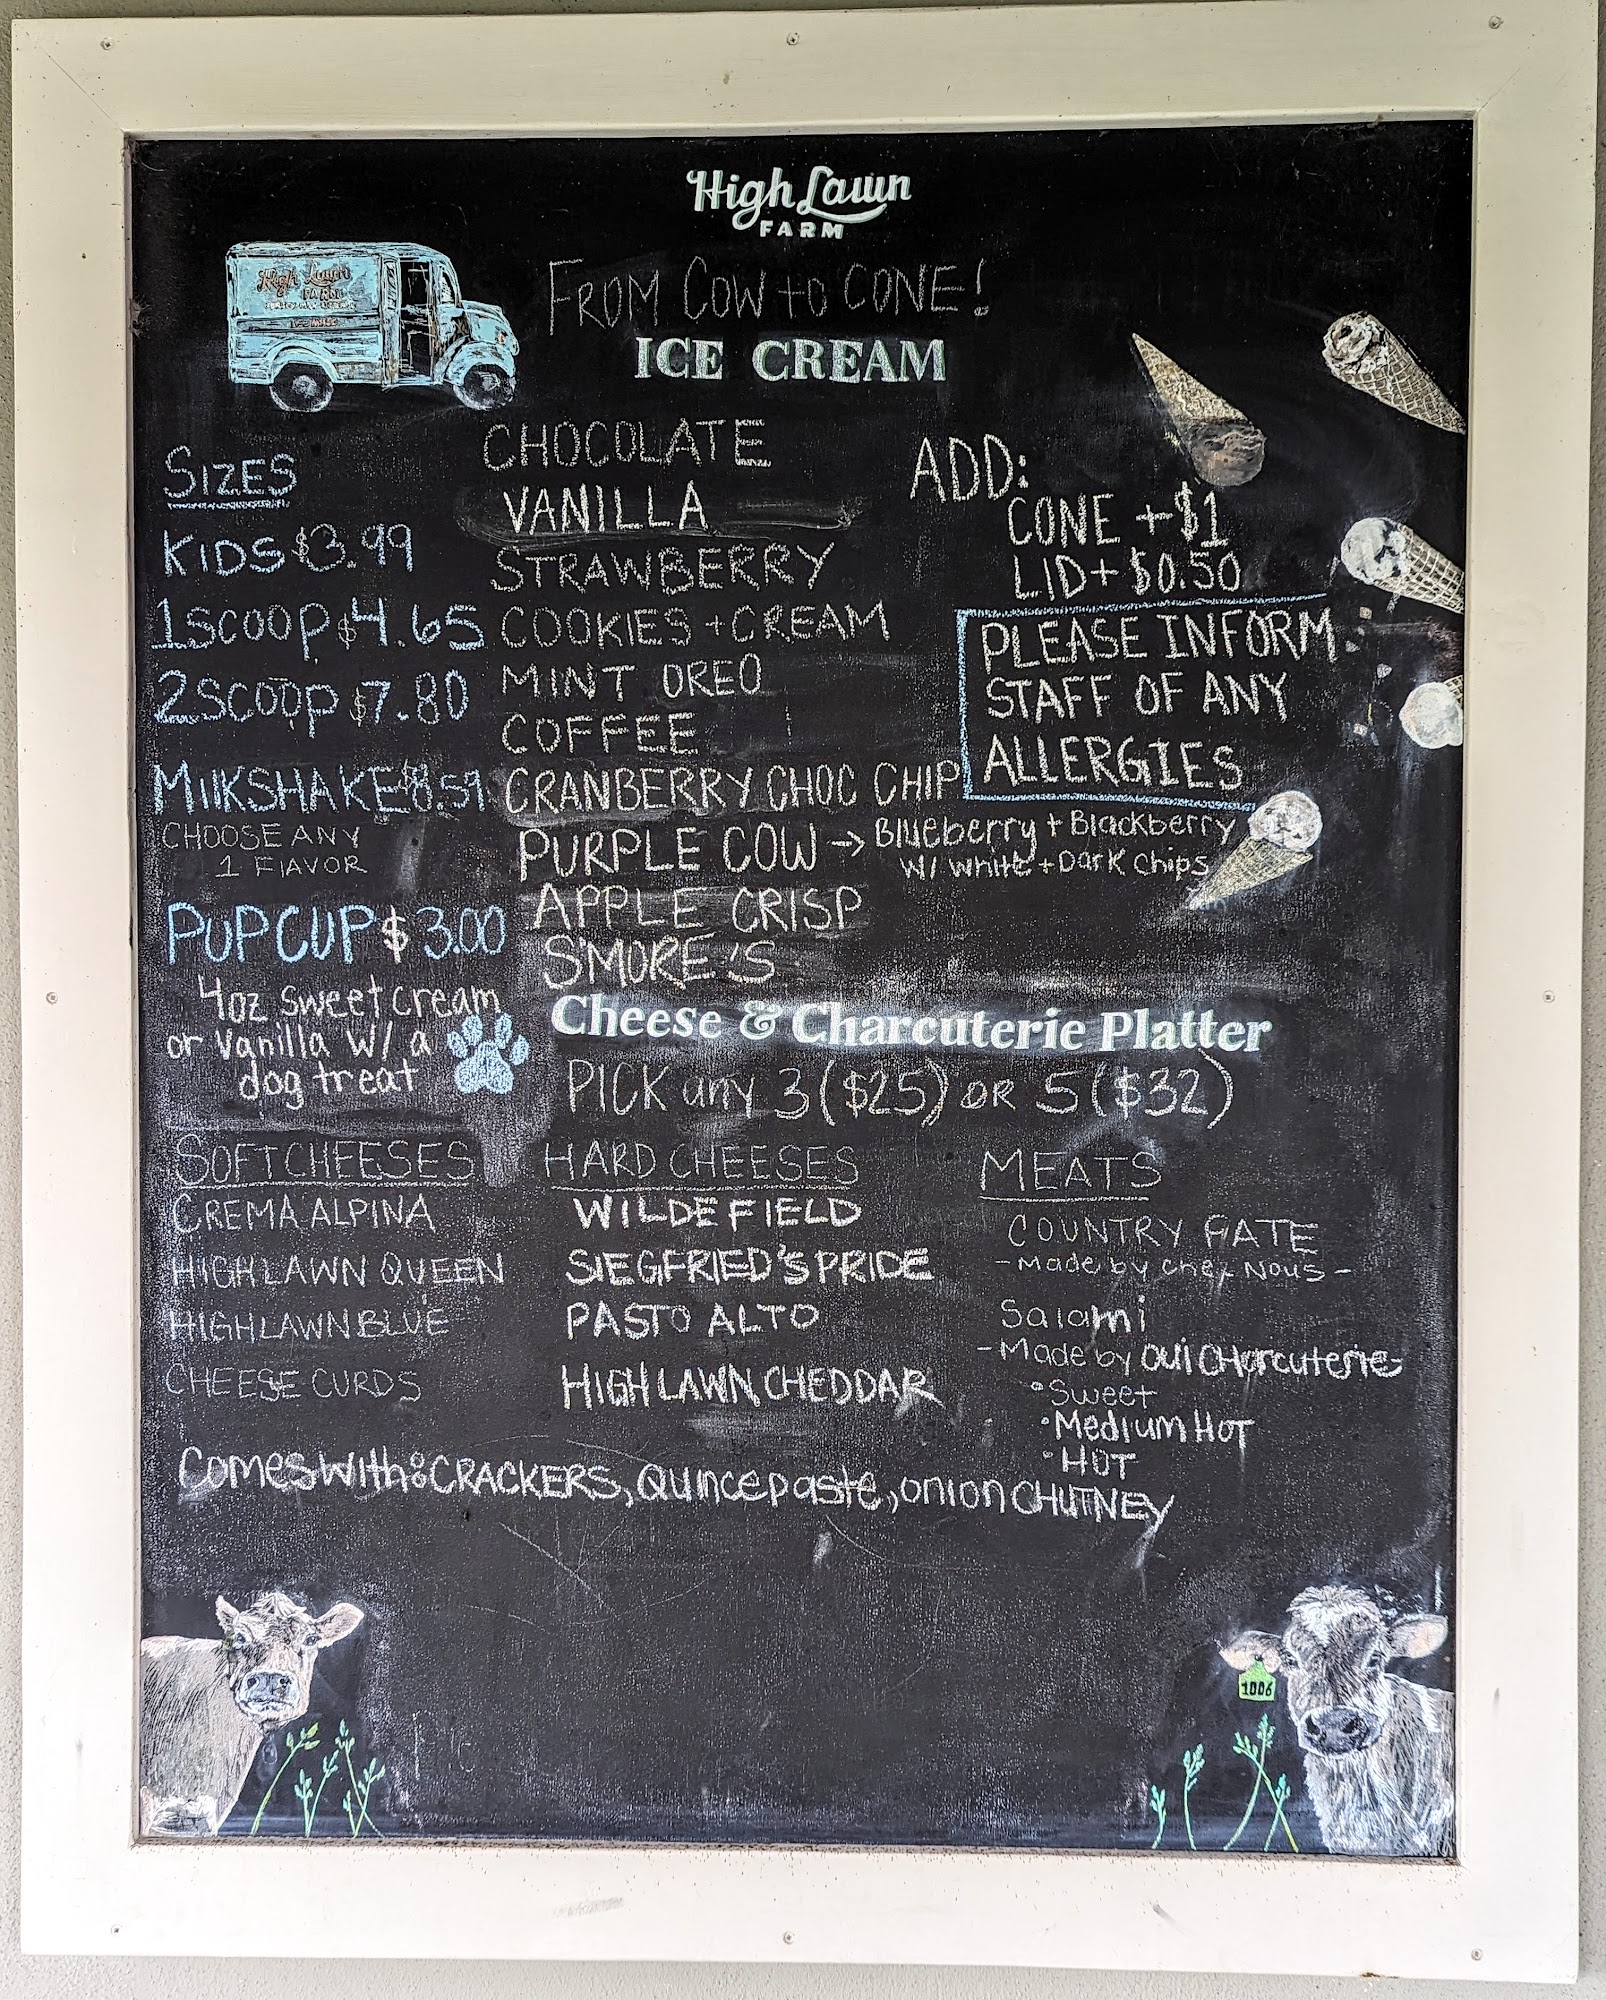 High Lawn
FARM
FROM COW to CONE!
ICE CREAM
High Lawn
FARM
SIZES
KIDS $3.99
1SCOOP $4.65
2SCOOP $7.80
MIlKSHAKE $8.59
CHOOSE ANY
1 FlAVOR
PUPCUP $3.00
4oz sweet cream
or Vanilla W/ a
dog treat
CHOCOLATE
VANILLA
STRAWBERRY
COOKIES + CREAM
MINT OREO
COFFEE
CRANBERRY CHOC CHIP
PURPLE COW → Blueberry + Blackberry
W/ White + Dark Chips
APPLE CRISP
S'MORE'S
ADD:
CONE + $1
LID + $0.50
PLEASE INFORM
STAFF OF ANY
ALLERGIES
Cheese & Charcuterie Platter
PICK any 3 ($25) OR 5 ($32)
SOFT CHEESES
CREMA ALPINA
HIGH LAWN QUEEN
HIGH LAWN BLUE
CHEESE CURDS
HARD CHEESES
WILDEFIELD
SIEGFRIED'S PRIDE
PASTO ALTO
HIGH LAWN CHEDDAR
MEATS
COUNTRY PATE
- Made by Chez Nous -
Salami
- Made by Oui CHarcuterie -
• Sweet
• Medium HOT
• HOT
Comes With: CRACKERS, Quince paste, onion CHUTNEY
1006